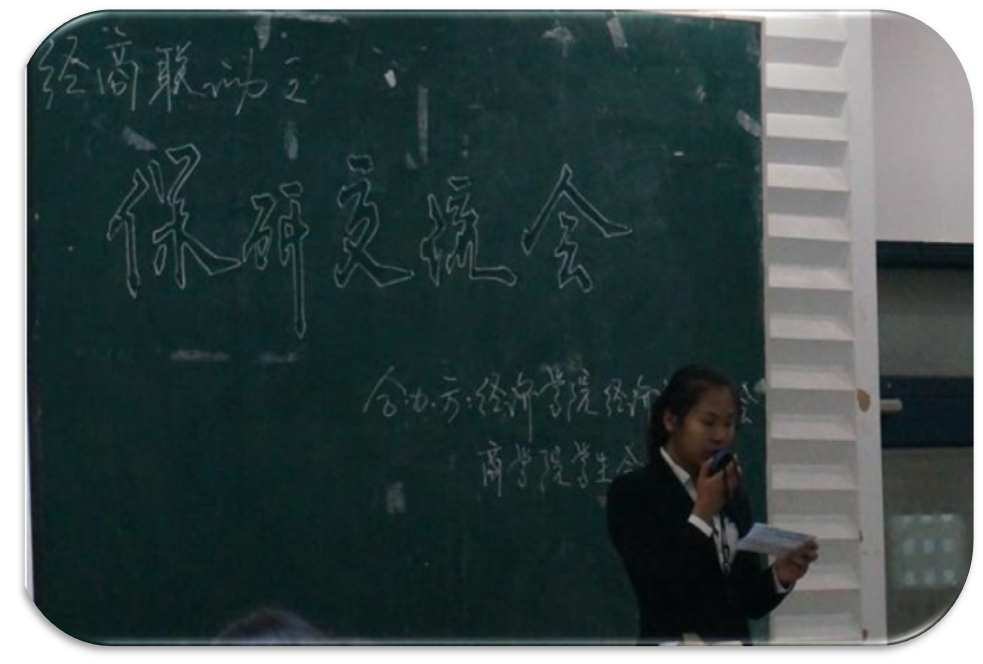 经商联动之
保研交流会
合办方:经济学院经济 会
商学院学生会